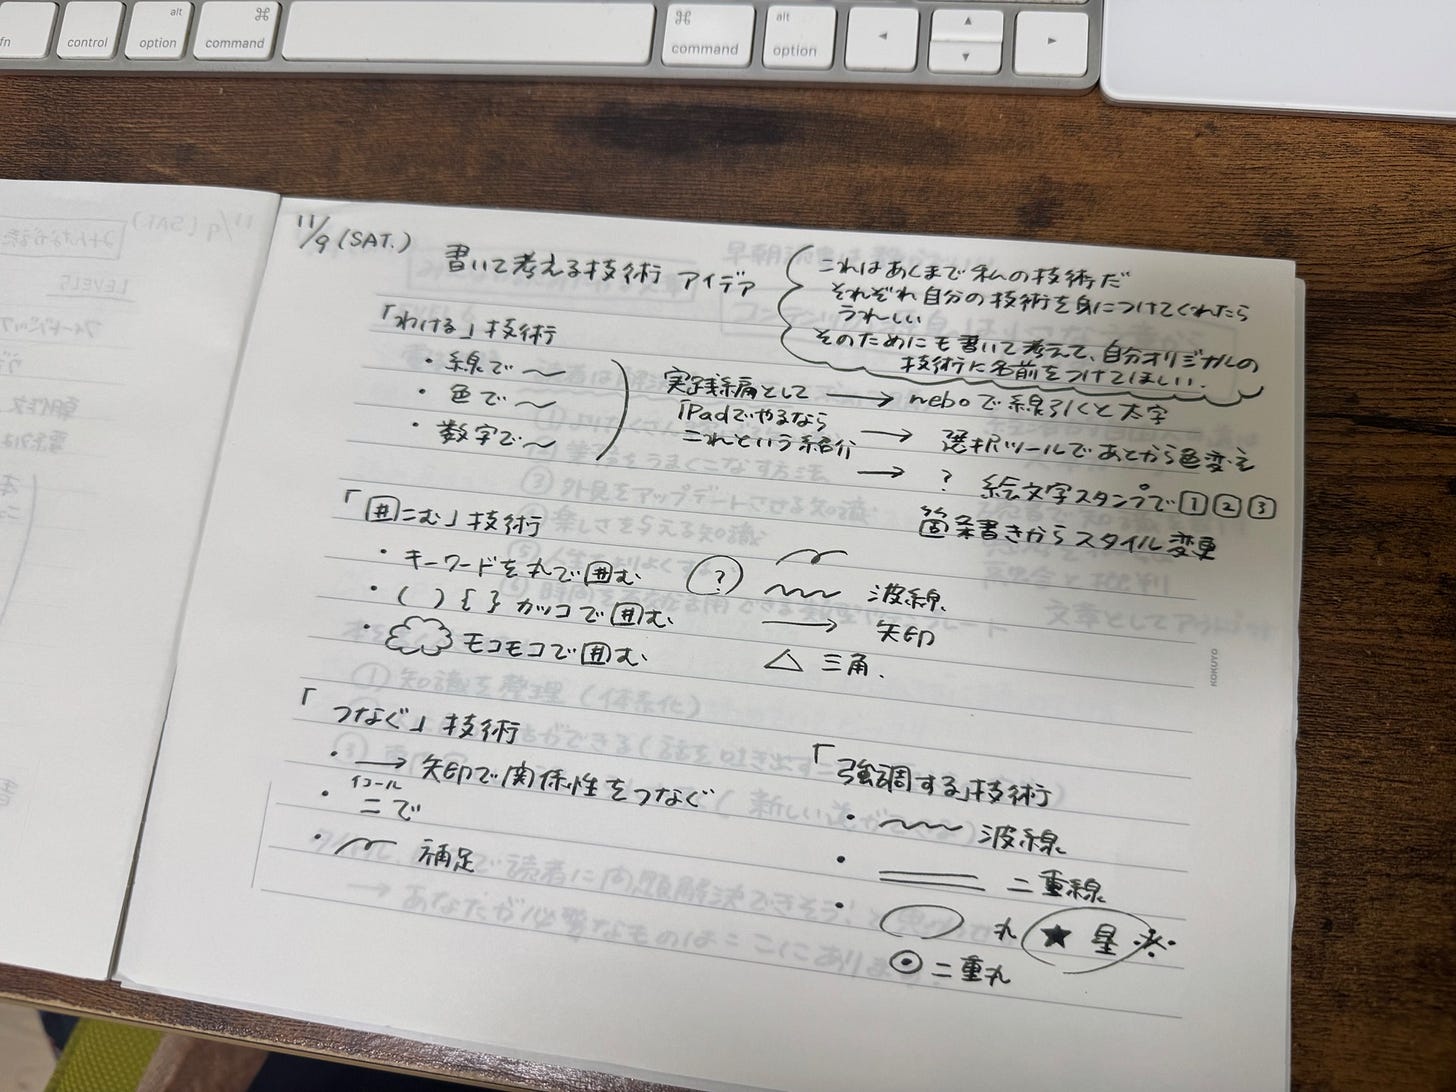 fn
control
alt
option
⌘
command
⌘
command
alt
option
◀
▲
▼
▶
11/9 (SAT.)
書いて考える技術 アイデア
これはあくまで私の技術だ
それぞれ自分の技術を身につけてくれたら
うれしい
そのためにも書いて考えて、自分オリジナルの
技術に名前をつけてほしい.
「わける」技術
・線で〜
・色で〜
・数字で〜
実践編として
iPadでやるなら
これという紹介
→ neboで線引くと太字
→ 選択ツールであとから色変え
→ ? 絵文字スタンプで 1 2 3
箇条書きからスタイル変更
「囲こむ」技術
・キーワードを丸で囲む
・( ) { } カッコで囲む
・モコモコで囲む
?
波線
→ 矢印
△ 三角.
「つなぐ」技術
・→ 矢印で関係性をつなぐ
イコール
・= で
・ 補足
「強調する」技術
・〜〜 波線
・ 二重線
・○ 丸 ★ 星 ※
◎ 二重丸
KOKUYO
11/9 (SAT.)
LEVEL5